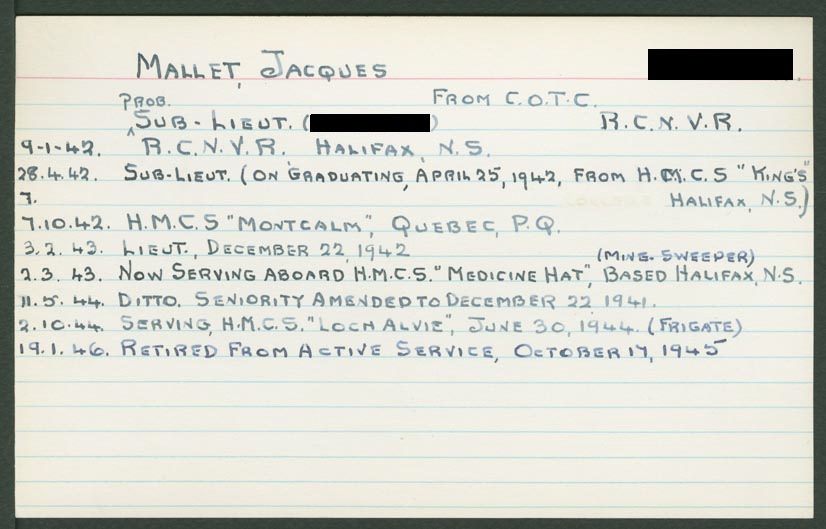 MALLET, JACQUES
PROB. FROM C.O.T.C.
^SUB-LIEUT. ( ) R.C.N.V.R.
9-1-42. R.C.N.V.R. HALIFAX, N.S.
28.4.42. SUB-LIEUT. (ON GRADUATING, APRIL 25, 1942, FROM H.M.C.S "KING'S"
7. HALIFAX, N.S.)
7.10.42. H.M.C.S "MONTCALM", QUEBEC, P.Q.
3.2.43. LIEUT., DECEMBER 22, 1942
(MINE-SWEEPER)
2.3.43. NOW SERVING ABOARD H.M.C.S. "MEDICINE HAT", BASED HALIFAX, N.S.
11.5.44. DITTO, SENIORITY AMENDED TO DECEMBER 22 1941.
2.10.44. SERVING, H.M.C.S. "LOCH ALVIE", JUNE 30, 1944. (FRIGATE)
19.1.46. RETIRED FROM ACTIVE SERVICE, OCTOBER 17, 1945